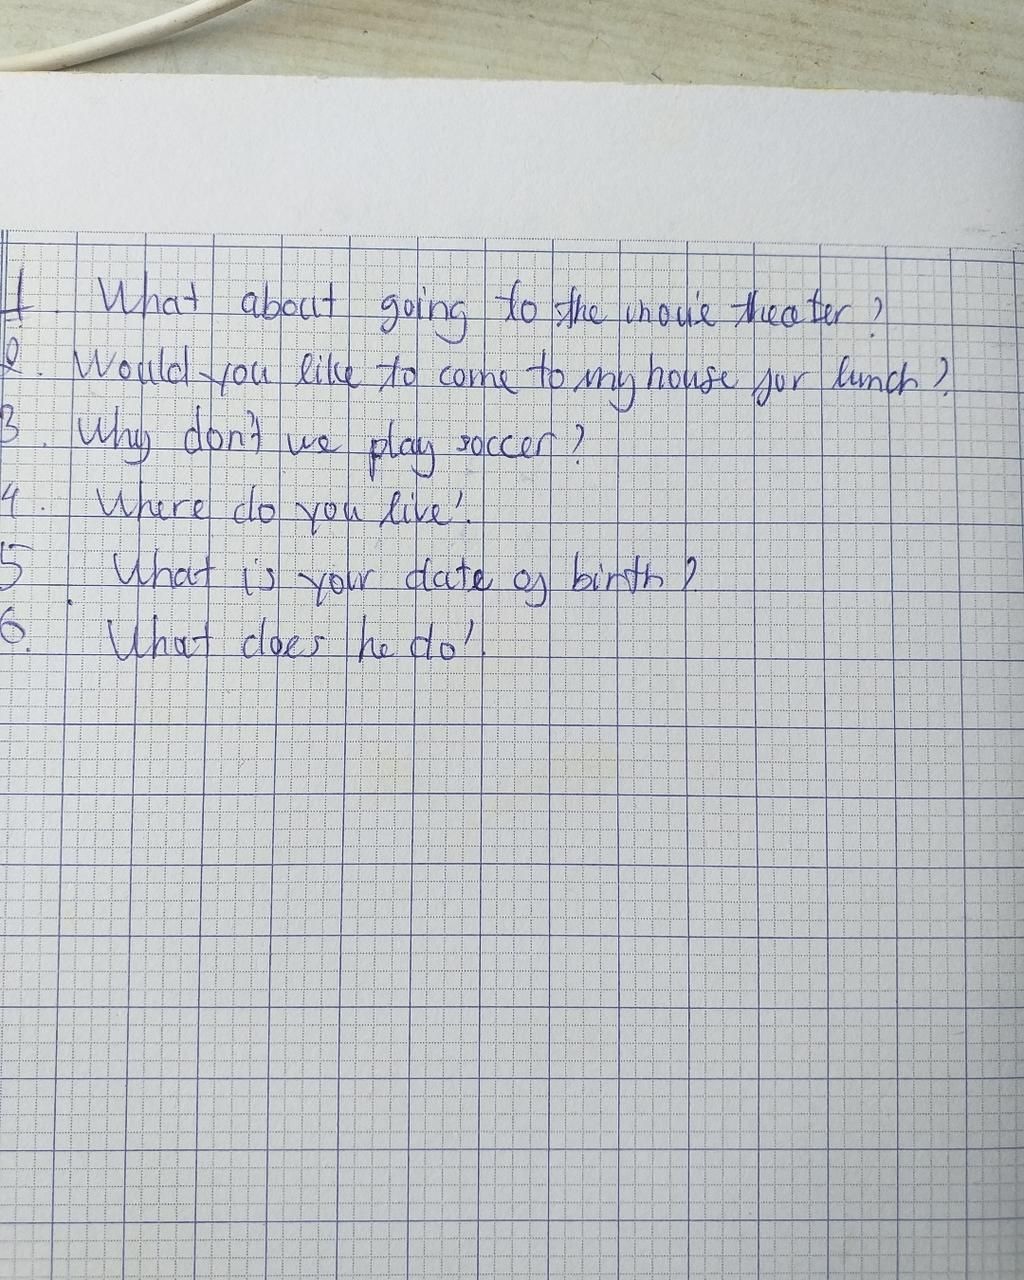 1. What about going to the movie theater?
2. Would you like to come to my house for lunch?
3. Why don't we play soccer?
4. Where do you live?
5 What is your date of birth?
6. What does he do?